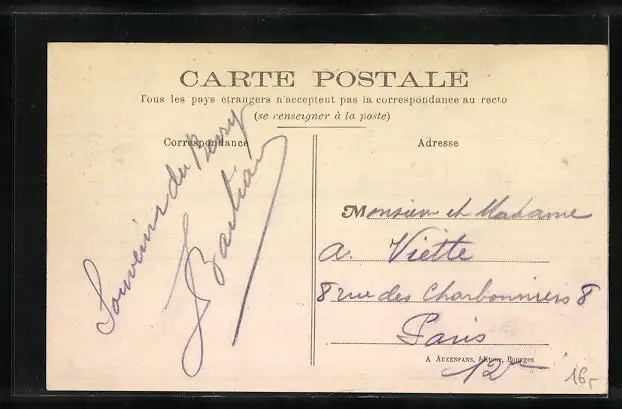 CARTE POSTALE
Tous les pays étrangers n'acceptent pas la correspondance au recto
(se renseigner à la poste)
Correspondance
Adresse
Souvenir du Berry
J Bastian
Monsieur et Madame
A. Viette
8 rue des Charbonniers 8
Paris
12e
A AUXENFANS, éditeur, Bourges
16,-